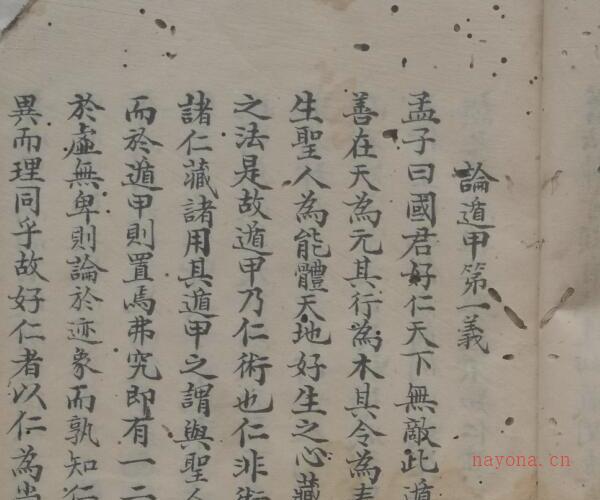 論遁甲第一義
孟子曰國君好仁天下無敵此遁
善在天為元其行為木其令為春
生聖人為能體天地好生之心藏
之法是故遁甲乃仁術也仁非術
諸仁藏諸用其遁甲之謂與聖人
而於遁甲則置焉弗究即有一二
於虛無卑則論於迹象而孰知仁
異而理同乎故好仁者以仁為
nayona.cn